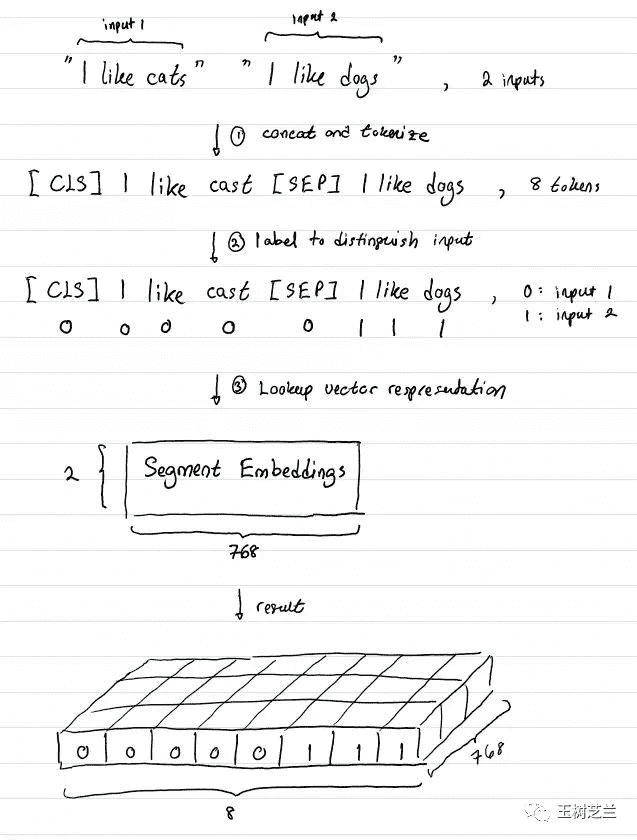 input 1 input 2
"I like cats" "I like dogs" , 2 inputs
① concat and tokenize
[CLS] I like cast [SEP] I like dogs , 8 tokens
② label to distinguish input
[CLS] I like cast [SEP] I like dogs , 0: input 1
0 0 0 0 0 1 1 1 1: input 2
③ Lookup vector respresentation
2 Segment Embeddings
768
result
0 0 0 0 0 1 1 1
768
8
玉树芝兰